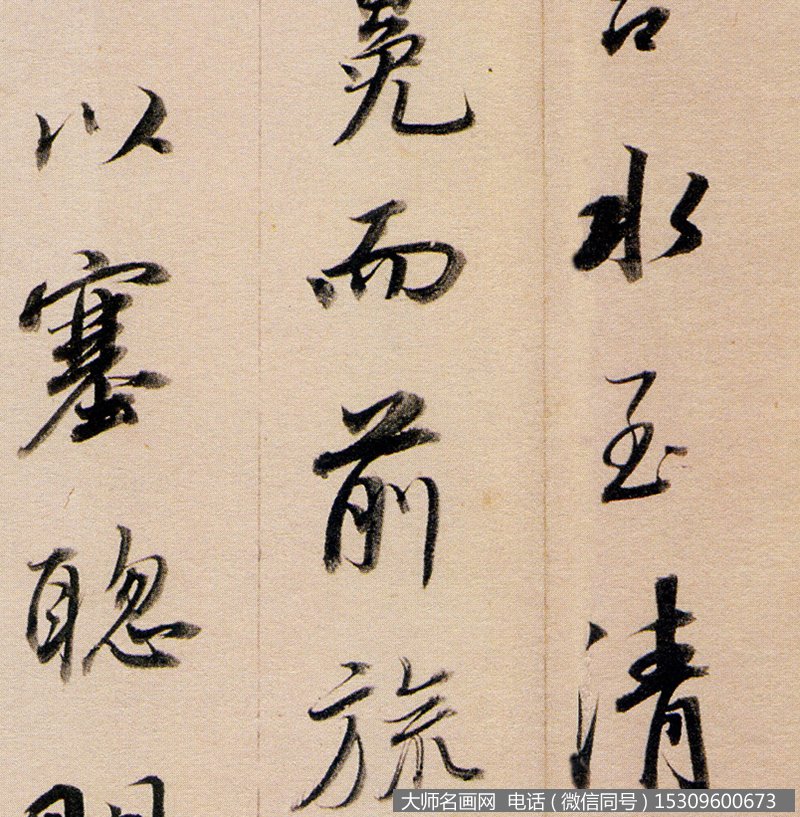 水至清
冕而前旒
以塞聦明
大师名画网 电话（微信同号）15309600673